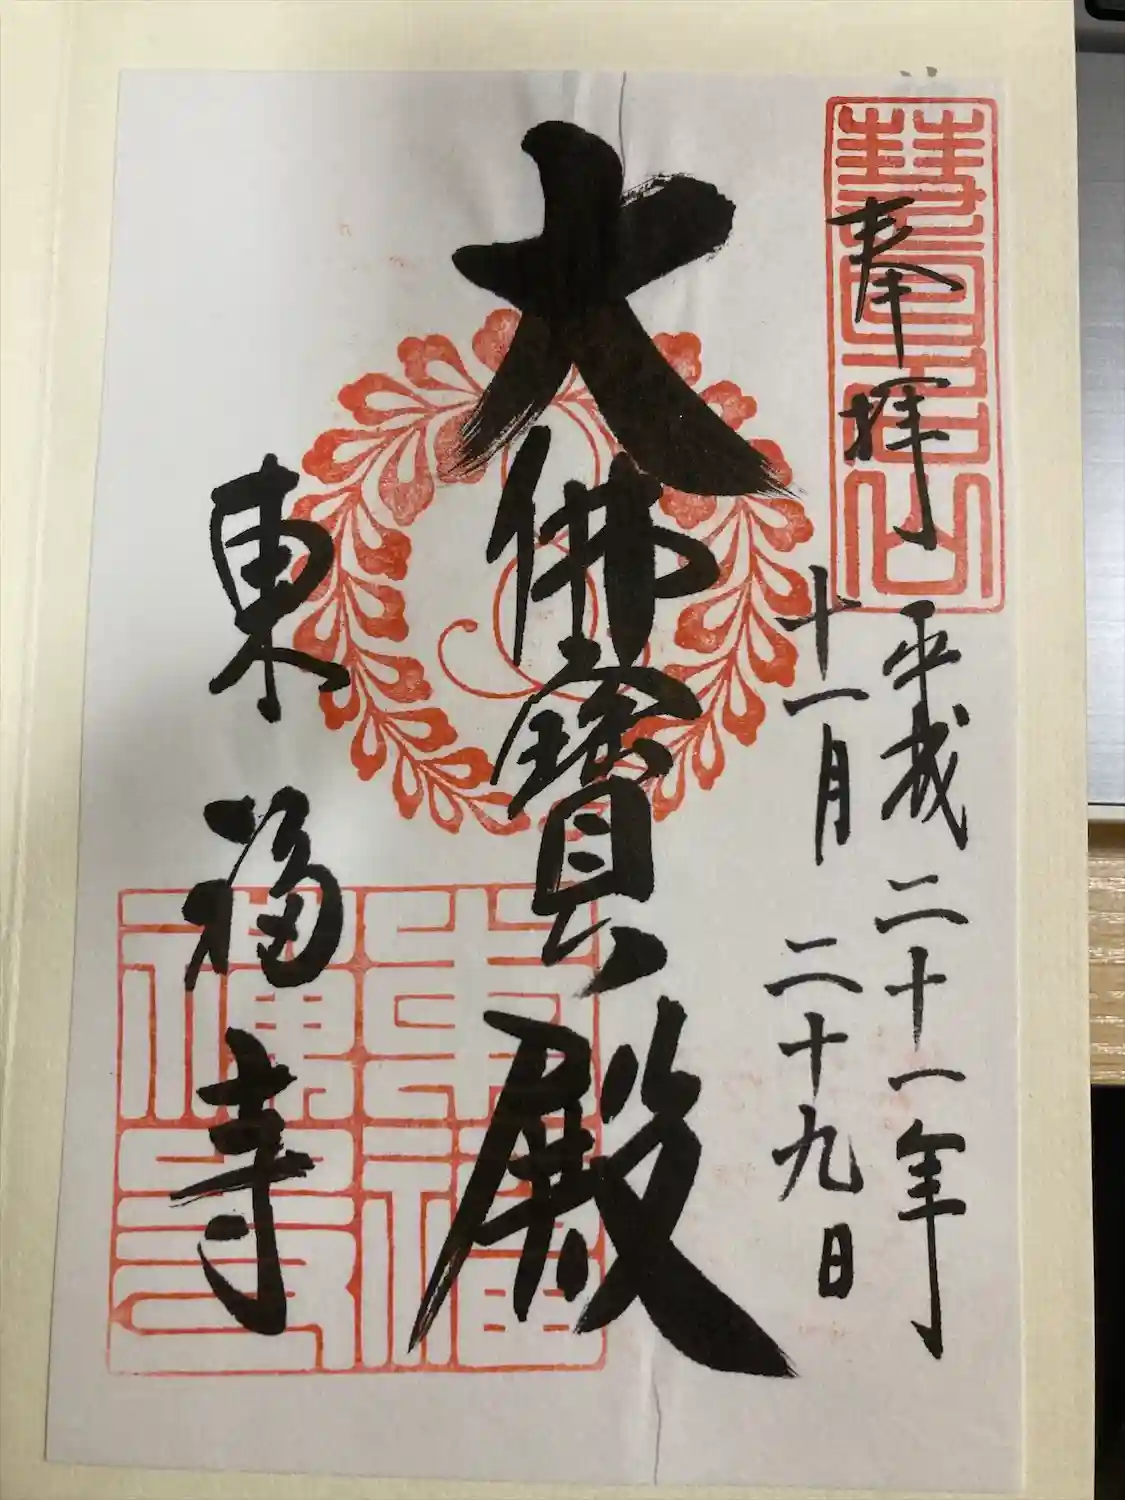 奉拝
平成二十一年
十一月二十九日
大佛寳殿
東福寺
慧日山
東福禅寺